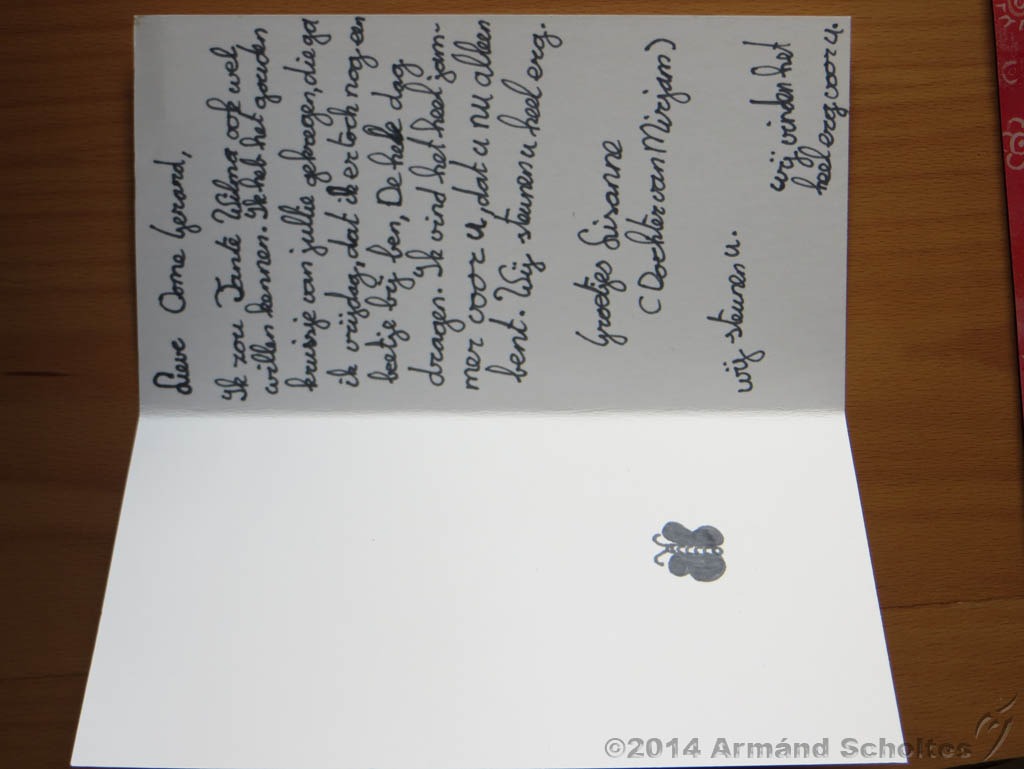 Lieve Ome Gerard,
Ik zou Tante Wilma ook wel
willen kennen. Ik heb het gouden
kruisje van jullie gekregen, die ga
ik vrijdag, dat ik er toch nog een
beetje bij ben, De hele dag
dragen. Ik vind het heel jam-
mer voor u, dat u nu alleen
bent. Wij steunen u heel erg.
Groetjes Susanne
(Dochter van Mirjam)
wij steunen u.
wij vinden het
heel erg voor u.
©2014 Armánd Scholtes